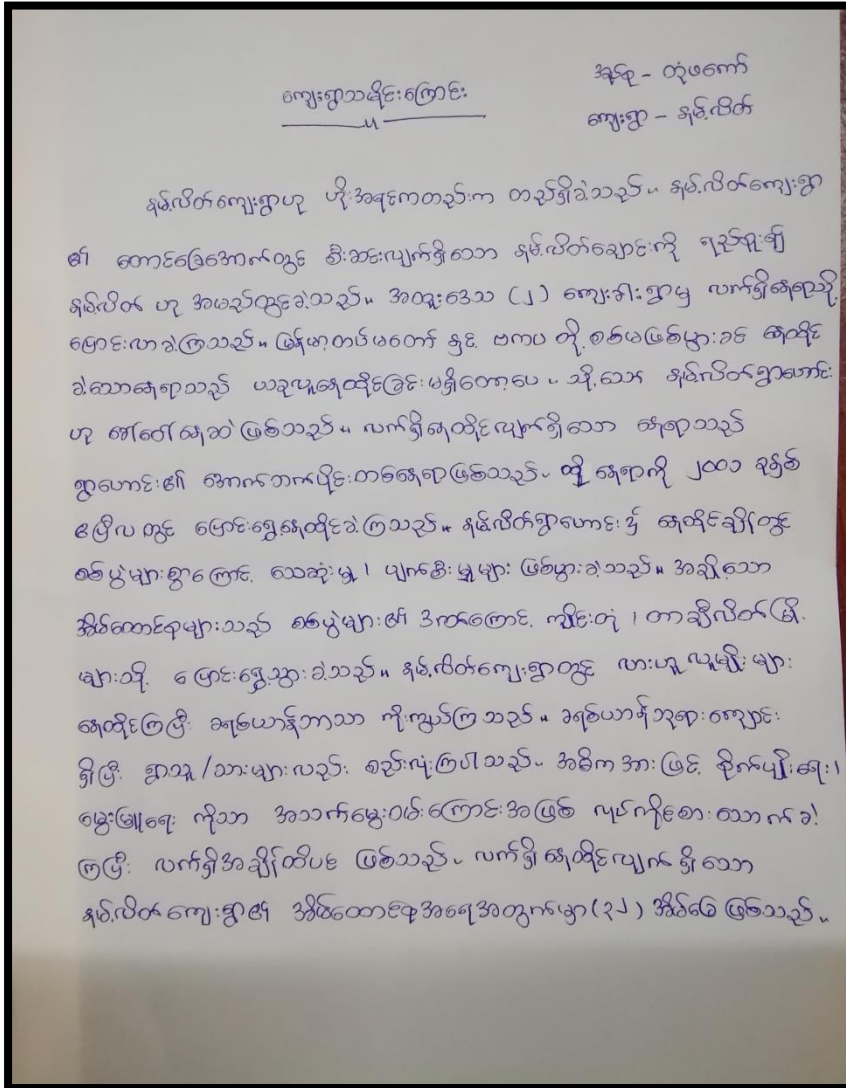 အုပ်စု - တုံဖကော်
ကျေးရွာသမိုင်းကြောင်း
ကျေးရွာ - နမ့်လိတ်
နမ့်လိတ်ကျေးရွာဟု ဟိုးအရင်ကတည်းက တည်ရှိခဲ့သည်။ နမ့်လိတ်ကျေးရွာ
၏ တောင်ခြေအောက်တွင် စီးဆင်းလျက်ရှိသော နမ့်လိတ်ချောင်းကို ရည်စူး၍
နမ့်လိတ် ဟု အမည်တွင်ခဲ့သည်။ အထူးဒေသ (၂) ကျေးခါးရွာမှ လက်ရှိနေရာသို့
ပြောင်းလာခဲ့ကြသည်။ မြန်မာ့တပ်မတော် နှင့် ဗကပ တို့ စစ်မဖြစ်ပွားခင် နေထိုင်
ခဲ့သောနေရာသည် ယခုလူနေထိုင်ခြင်းမရှိတော့ပေ။ သို့သော် နမ့်လိတ်ရွာဟောင်း
ဟု ခေါ်ဝေါ်နေဆဲ ဖြစ်သည်။ လက်ရှိနေထိုင်လျက်ရှိသော နေရာသည်
ရွာဟောင်း၏ အောက်ဘက်ပိုင်းတစ်နေရာဖြစ်သည်။ ထို နေရာကို ၂၀၀၁ ခုနှစ်
ဧပြီလ တွင် ပြောင်းရွှေ့နေထိုင်ခဲ့ကြသည်။ နမ့်လိတ်ရွာဟောင်း ၌ နေထိုင်ချိန်တွင်
စစ်ပွဲများစွာကြောင့် သေဆုံးမှု၊ ပျက်စီးမှုများ ဖြစ်ပွားခဲ့သည်။ အချို့သော
အိမ်ထောင်စုများသည် စစ်ပွဲများ၏ ဒဏ်ကြောင့် ကျိုင်းတုံ၊ တာချီလိတ်မြို့
များသို့ ပြောင်းရွှေ့သွားခဲ့သည်။ နမ့်လိတ်ကျေးရွာတွင် လားဟူလူမျိုးများ
နေထိုင်ကြပြီး ခရစ်ယာန်ဘာသာ ကိုးကွယ်ကြသည်။ ခရစ်ယာန်ဘုရားကျောင်း
ရှိပြီး ရွာသူ/သားများလည်း စည်းလုံးကြပါသည်။ အဓိကအားဖြင့် စိုက်ပျိုးရေး၊
မွေးမြူရေး ကိုသာ အသက်မွေးဝမ်းကြောင်းအဖြစ် လုပ်ကိုင်စားသောက်ခဲ့
ကြပြီး လက်ရှိအချိန်ထိပင် ဖြစ်သည်။ လက်ရှိနေထိုင်လျက်ရှိသော
နမ့်လိတ်ကျေးရွာ၏ အိမ်ထောင်စုအရေအတွက်မှာ (၃၂) အိမ်ခြေ ဖြစ်သည်။